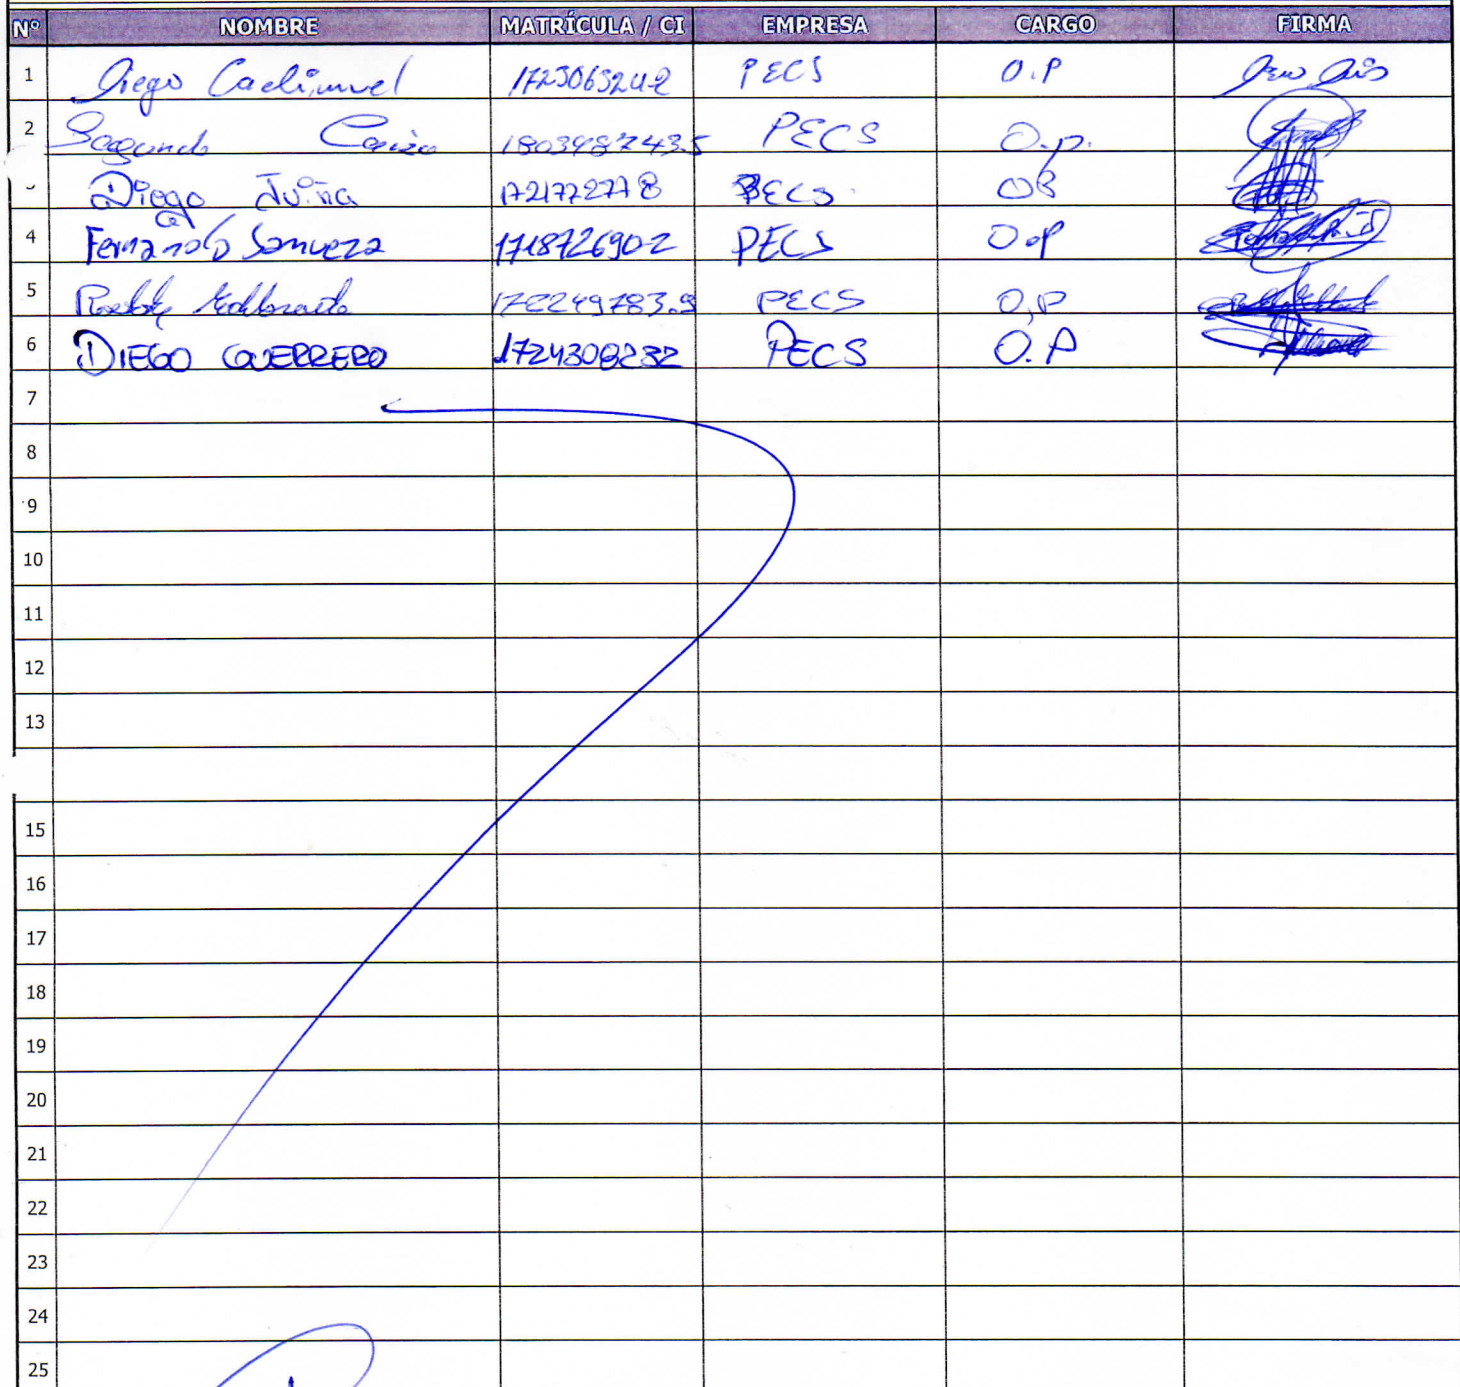 Nº NOMBRE MATRÍCULA / CI EMPRESA CARGO FIRMA
1 Diego Cachimuel 172306324-2 PECS O.P
2 Segundo 180348743-5 PECS O.p.
Diego Tuiña 172177277-8 PECS OP
4 Fernando Samueza 171872690-2 PECS O.P
5 Maldonado 172249783-9 PECS O.P
6 DIEGO GUERRERO 1724308232 PECS O.P
7
8
9
10
11
12
13
15
16
17
18
19
20
21
22
23
24
25